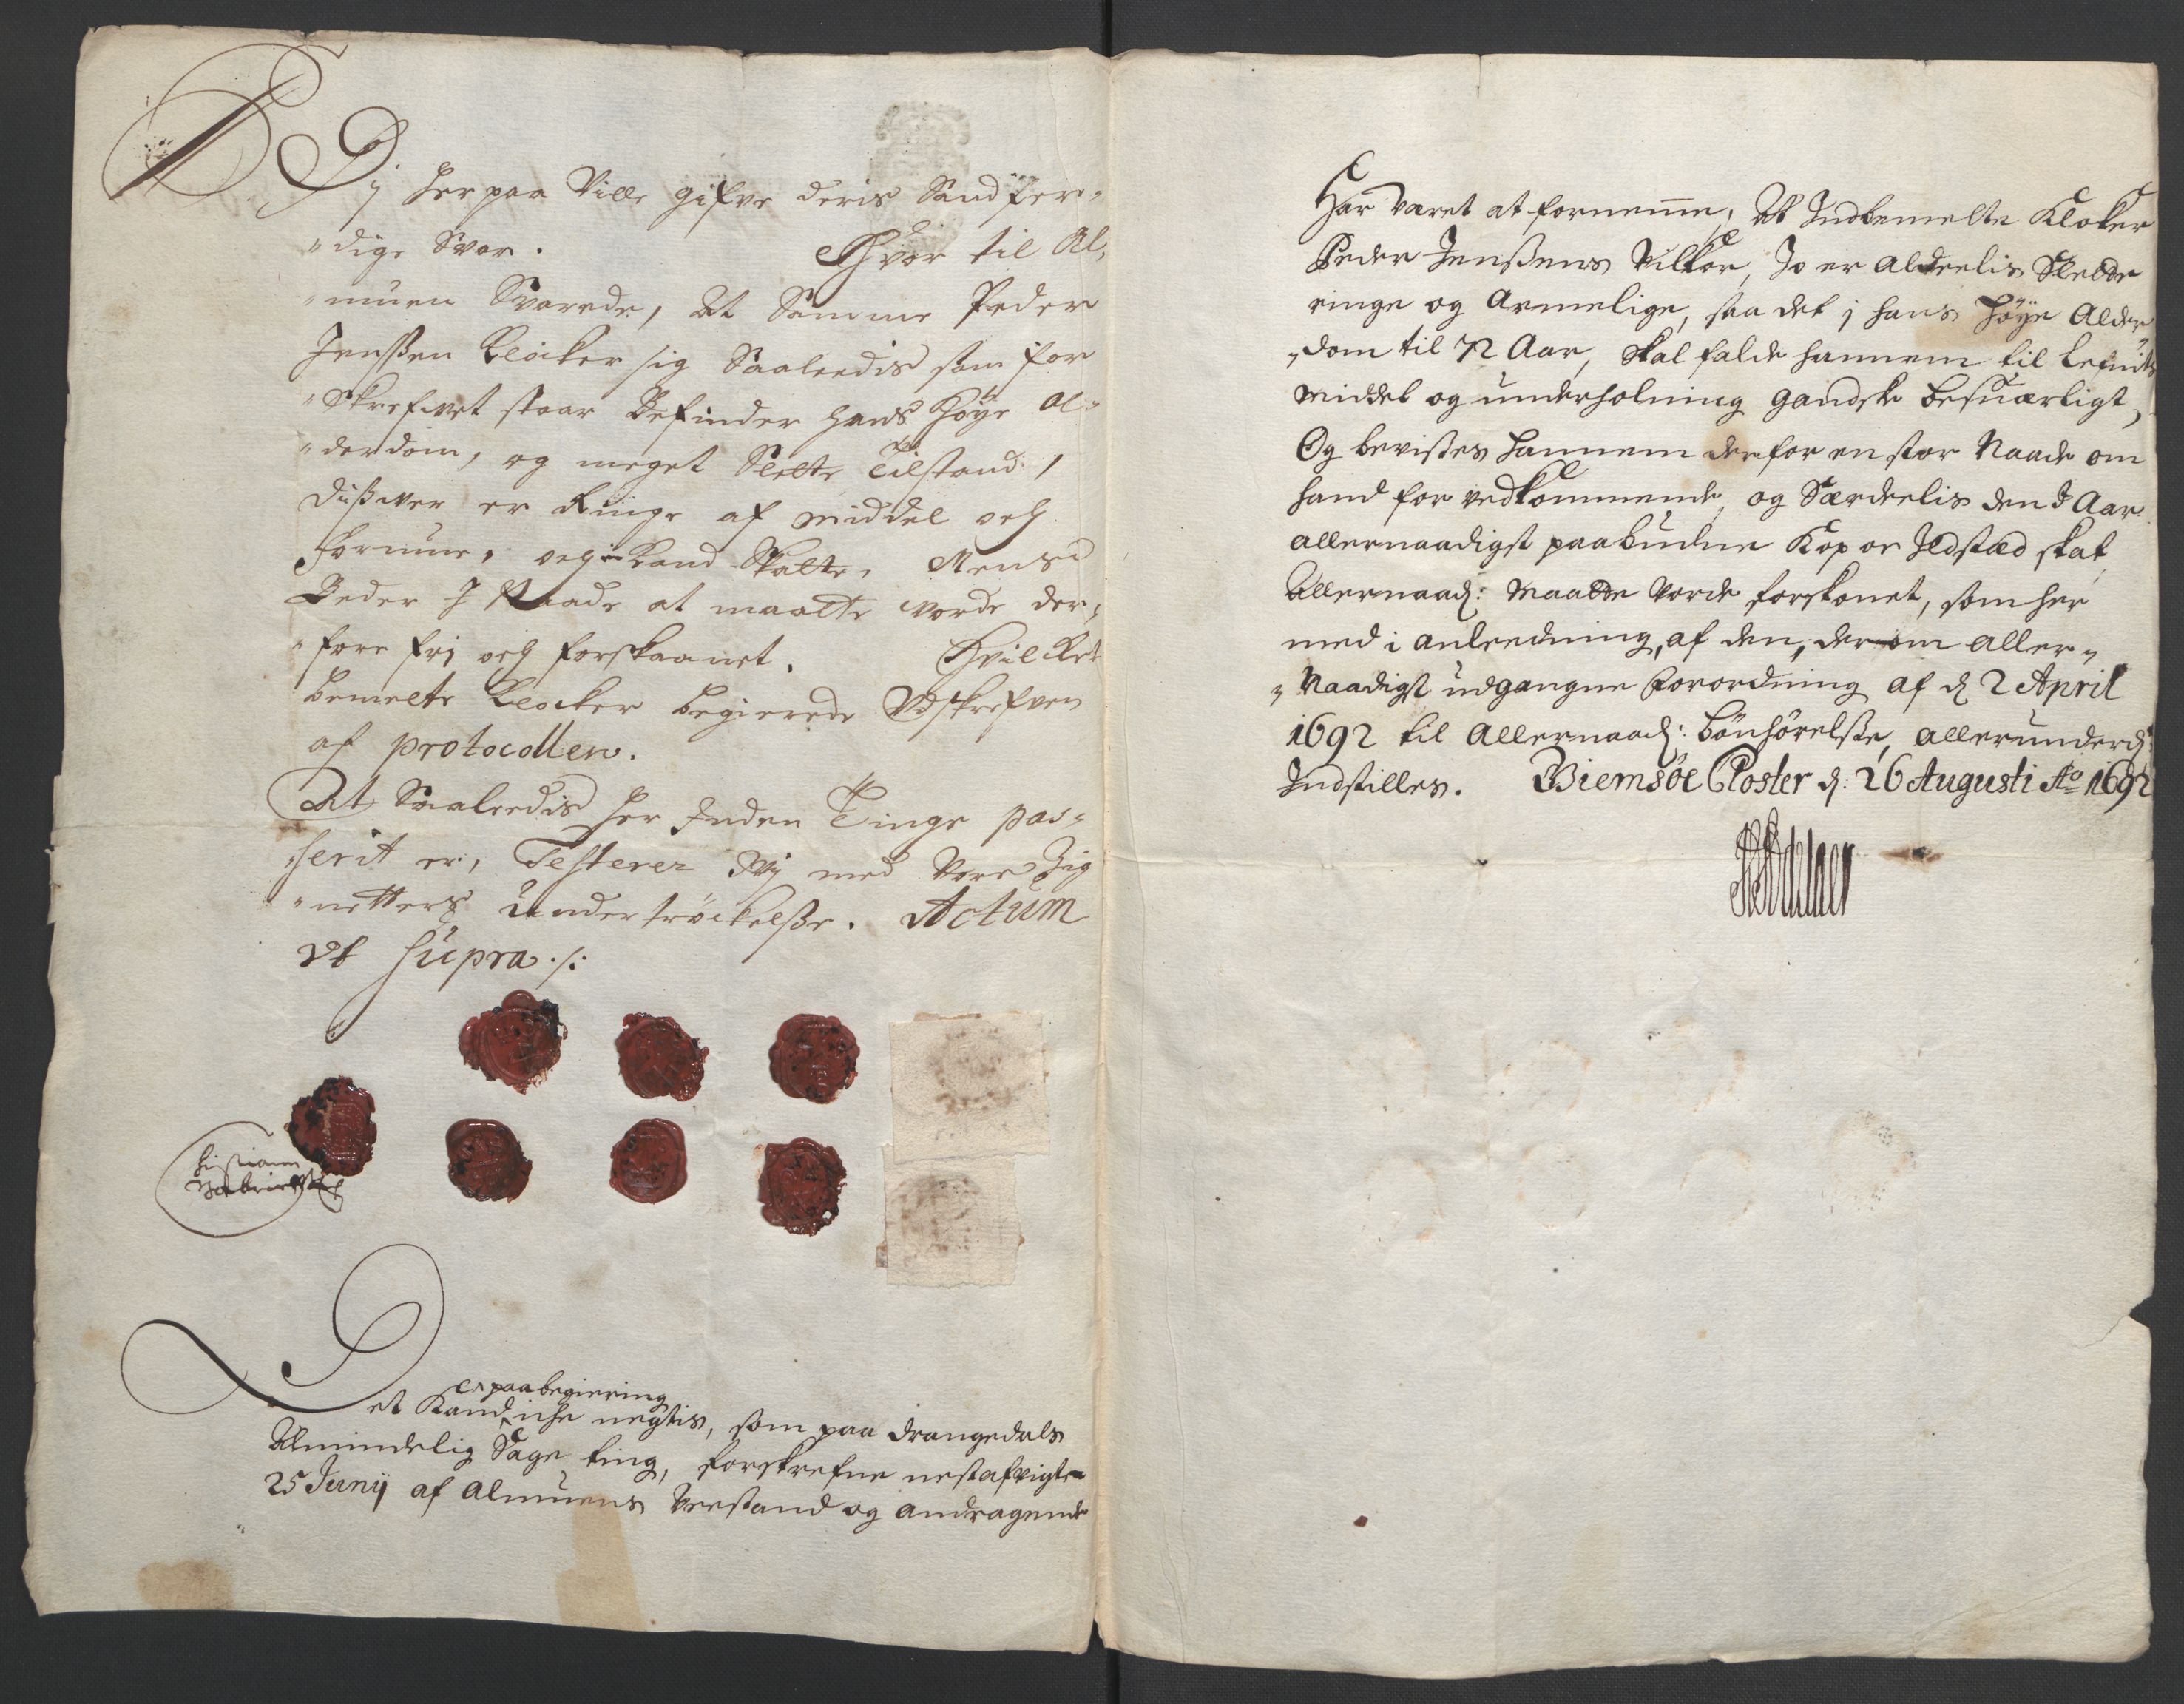 Dj her paa Ville gifve deris Sandfer-
"dige Svar. Hvor til Al,
"muen Svarede, At Samme Peder
Jenssen Klocker sig Saaleedis som for
"Skrefvet staar Befinder hans Høÿe Al-
"derdom, og meget Slette Tilstand,
dissver er Ringe af middel och
formue, och i Land Skatte, Mens
Peder I Naade at maatte vorde der,
"fore frj och forskaanet. Hvilket
bemelte Klocker begierede Udskrefven
af protocollen.
At Saaleedis her Inden Tinge pas-
"serit er, Testerer Wj med Vore Zig
"netters Undertrøckelsse. Actum
ut supra ./:
et Kand er paa begiering iche negtis, som paa Drangedals
Almindelig Sage ting, forskrefne nestafvigte
25 Junij af Almuens Verstand og andragende
Har været at fornemme, At Indbemelte Kloker
Peder Jenssens Vilkor, Jo er aldeelis Slette
ringe og Armelige, saa det j hans høÿe Alder
"dom til 72 Aar, skal falde hannem til Lefnets
middel og underholning gandske besuærligt,
Og bevistes hannem derfor en stor Naade om
hand for vedkommende, og Særdeelis den J Aar
allernaadigst paabudne Kop og Ildsted skat
Allernaad: maatte vorde forskonet, som her
med i anleedning, af den, derom aller"
"Naadigst udgangne Forordning af d 2 April
1692 til Allernaad: bønhørelsse, allerunderd:
Indstilles. Giemsøe Closter d: 26 Augusti Ao 1692